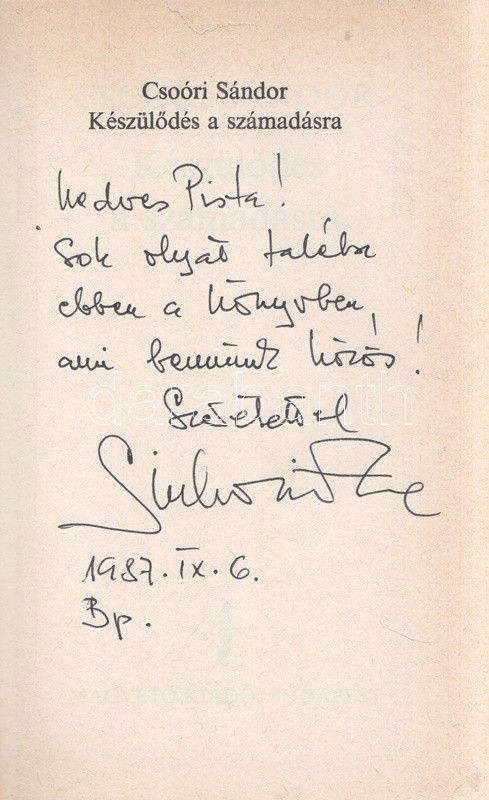 Csoóri Sándor
Készülődés a számadásra
Kedves Pista!
Sok olyat találsz
ebben a könyvben,
ami bennünk közös!
darabanth
Szeretettel
1987. IX. 6.
Bp.
MAGVETŐ KIADÓ, BUDAPEST